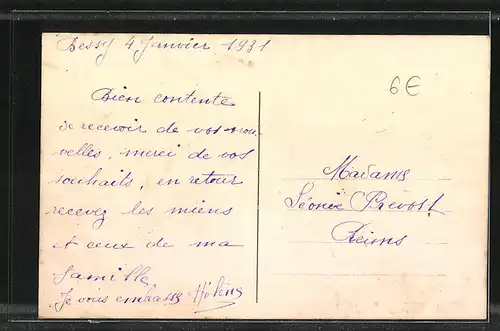 Bessy 4 Janvier 1931
6€
Bien contente
de recevoir de vos nou
velles, merci de vos
souhaits, en retour
recevez les miens
et ceux de ma
famille
Je vous embrasse Hélène
Madame
Léonie Prévost
Reims